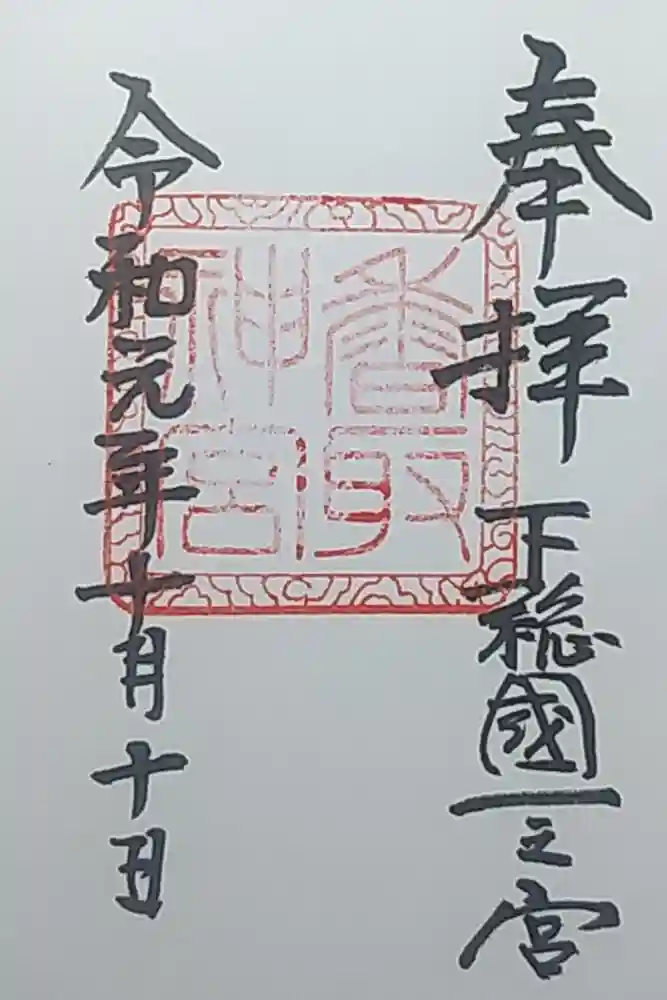 奉拝 下総國一之宮
香取神宮
令和元年十月十日